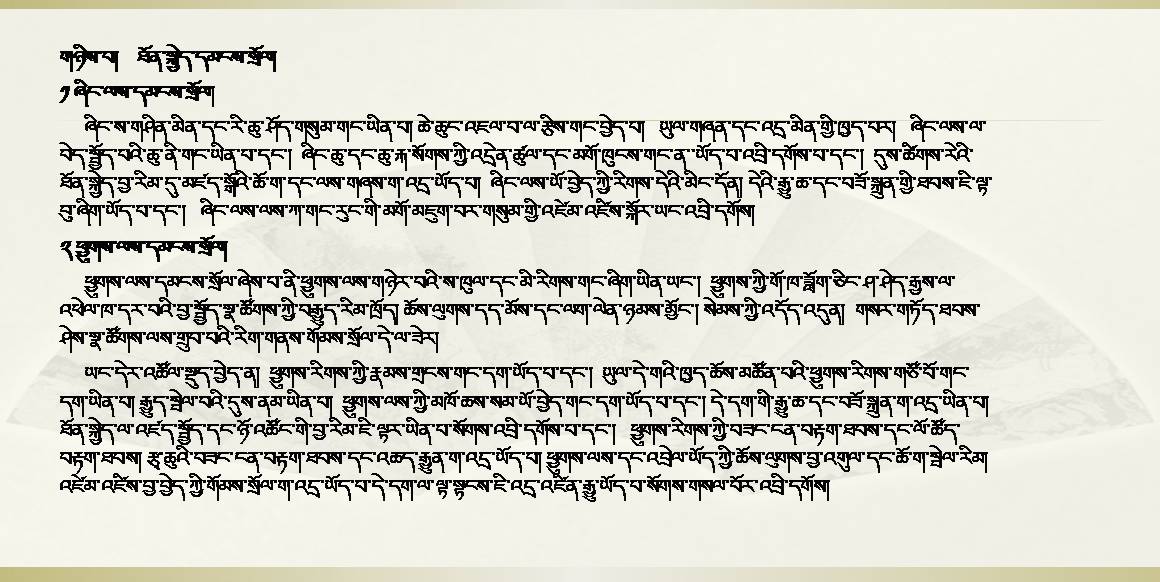 གཉིས་པ། ཐོན་སྐྱེད་དམངས་སྲོལ།
༡ ཞིང་ལས་དམངས་སྲོལ།
ཞིང་ས་གཤིན་མིན་དང་རི་ཆུ་ཤོད་གསུམ་གང་ཡིན་པ། ཆེ་ཆུང་འཇལ་བ་ལ་རྩིས་གང་བྱེད་པ། ཡུལ་གཞན་དང་འདྲ་མིན་གྱི་ཁྱད་པར། ཞིང་ལས་ལ་
བེད་སྤྱོད་པའི་ཆུ་ནི་གང་ཡིན་པ་དང་། ཞིང་ཆུ་དང་ཆུ་རྐ་སོགས་ཀྱི་འདྲེན་ཚུལ་དང་མགོ་ཁུངས་གང་ན་ཡོད་པ་འབྲི་དགོས་པ་དང་། དུས་ཚིགས་རེའི་
ཐོན་སྐྱེད་བྱ་རིམ་དུ་མཛད་སྒོའི་ཆོ་ག་དང་ལས་གཞས་ག་འདྲ་ཡོད་པ། ཞིང་ལས་ཡོ་བྱེད་ཀྱི་རིགས་དེའི་མིང་དོན། དེའི་རྒྱུ་ཆ་དང་བཟོ་སྐྲུན་གྱི་ཐབས་ཇི་ལྟ་
བུ་ཞིག་ཡོད་པ་དང་། ཞིང་ལས་ལས་ཀ་གང་རུང་གི་མགོ་མཇུག་བར་གསུམ་གྱི་འཛེམ་འཛིས་སྐོར་ཡང་འབྲི་དགོས།
༢ ཕྱུགས་ལས་དམངས་སྲོལ།
ཕྱུགས་ལས་དམངས་སྲོལ་ཞེས་པ་ནི་ཕྱུགས་ལས་གཉེར་བའི་ས་ཁུལ་དང་མི་རིགས་གང་ཞིག་ཡིན་ཡང་། ཕྱུགས་ཀྱི་གོ་ཁ་ཟློག་ཅིང་ཤ་ཤེད་རྒྱས་ལ་
འཕེལ་ཁ་དར་བའི་བྱ་སྤྱོད་སྣ་ཚོགས་ཀྱི་བརྒྱུད་རིམ་ཁྲོད། ཆོས་ལུགས་དད་མོས་དང་ལག་ལེན་ཉམས་མྱོང་། སེམས་ཀྱི་འདོད་འདུན། གསར་གཏོད་ཐབས་
ཤེས་སྣ་ཚོགས་ལས་གྲུབ་པའི་རིག་གནས་གོམས་སྲོལ་དེ་ལ་ཟེར།
ཡང་དེར་འཚོལ་སྡུད་བྱེད་ན། ཕྱུགས་རིགས་ཀྱི་རྣམས་གྲངས་གང་དག་ཡོད་པ་དང་། ཡུལ་དེ་གའི་ཁྱད་ཆོས་མཚོན་པའི་ཕྱུགས་རིགས་གཙོ་བོ་གང་
དག་ཡིན་པ། རྒྱུད་སྤེལ་བའི་དུས་ནམ་ཡིན་པ། ཕྱུགས་ལས་ཀྱི་མཁོ་ཆས་སམ་ཡོ་བྱེད་གང་དག་ཡོད་པ་དང་། དེ་དག་གི་རྒྱུ་ཆ་དང་བཟོ་སྐྲུན་ག་འདྲ་ཡིན་པ།
ཐོན་སྐྱེད་ལ་འཛད་སྤྱོད་དང་ཉོ་འཚོང་གི་བྱ་རིམ་ཇི་ལྟར་ཡིན་པ་སོགས་འབྲི་དགོས་པ་དང་། ཕྱུགས་རིགས་ཀྱི་བཟང་ངན་བརྟག་ཐབས་དང་ལོ་ཚོད་
བརྟག་ཐབས། རྩྭ་ཆུའི་བཟང་ངན་བརྟག་ཐབས་དང་འཆད་རྒྱུན་ག་འདྲ་ཡོད་པ། ཕྱུགས་ལས་དང་འབྲེལ་ཡོད་ཀྱི་ཆོས་ལུགས་བྱ་འགུལ་དང་ཆོ་ག་སྤེལ་རིམ།
འཛེམ་འཛིས་བྱ་བྱེད་ཀྱི་གོམས་སྲོལ་ག་འདྲ་ཡོད་པ་དེ་དག་ལ་ལྟ་སྟངས་ཇི་འདྲ་འཛིན་རྒྱུ་ཡོད་པ་སོགས་གསལ་པོར་འབྲི་དགོས།